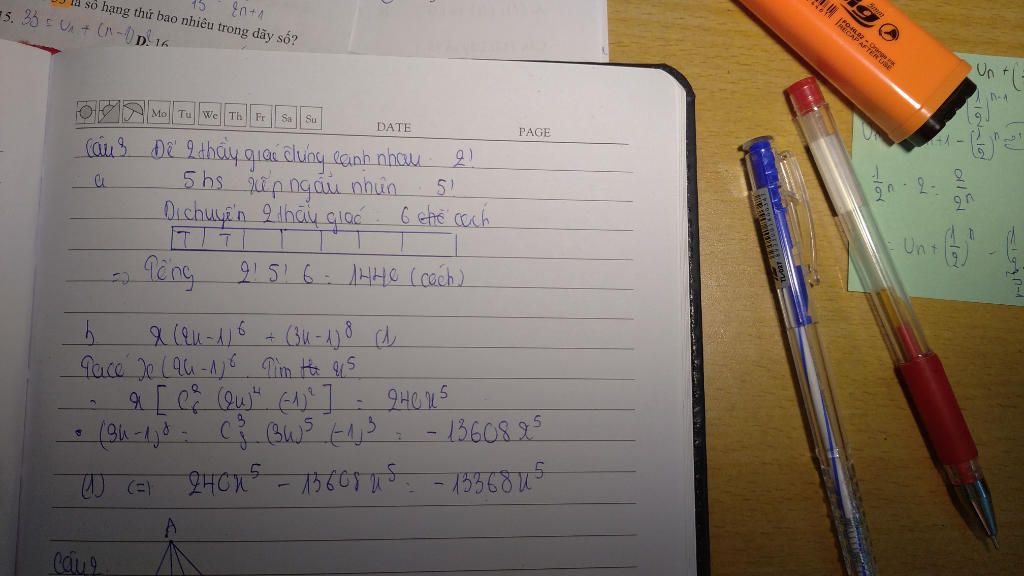 là số hạng thứ bao nhiêu trong dãy số?
15. 33 = Un + (n-1)
D. 16
2n+1
Mo Tu We Th Fr Sa Su
DATE PAGE
Câu 3 Để 2 thầy giáo đứng cạnh nhau : 2!
a 5 hs xếp ngẫu nhiên : 5!
Di chuyển 2 thầy giáo : 6 chỗ cách
T T
=> Tổng 2! 5! 6 = 1440 (cách)
b. x(2x-1)^6 + (3x-1)^8 (1
Ta có x(2x-1)^6. Tìm x^5
= x [ C_6^2 (2x)^4 . (-1)^2 ] = 240x^5
• (3x-1)^8 = C_8^3 . (3x)^5 . (-1)^3 = -13608x^5
(1) <=> 240x^5 - 13608x^5 = -13368x^5
A
Câu 2
RECAP AFTER USE
Un + (
(1/2)^n-1
- (1/2)^n
1/2n . 2 = 2/2n
= Un + (1/2)^n - (1/2)